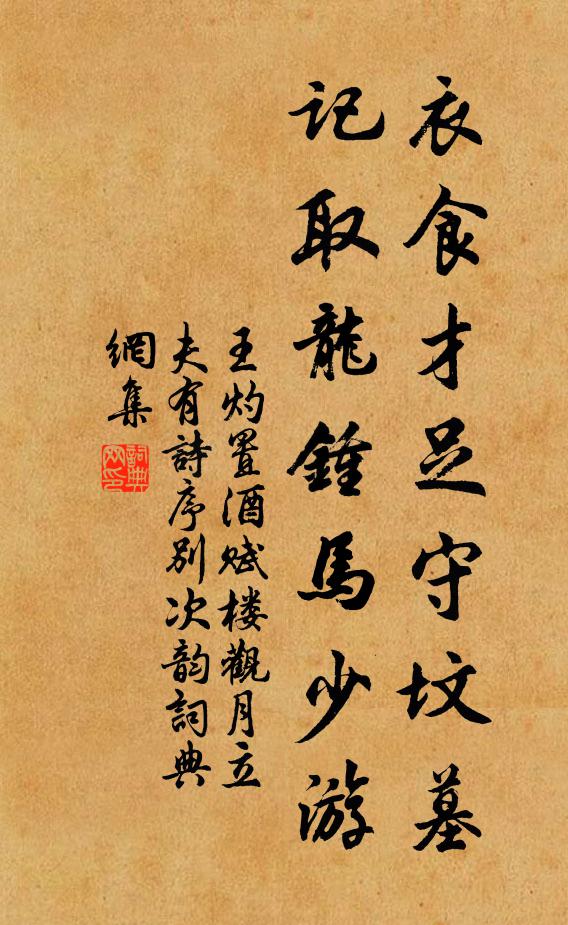 衣食才足守坟墓
记取龍鍾馬少游
王灼置酒赋楼觀月立
夫有詩序别次韵詞典
網集
詞典
网印